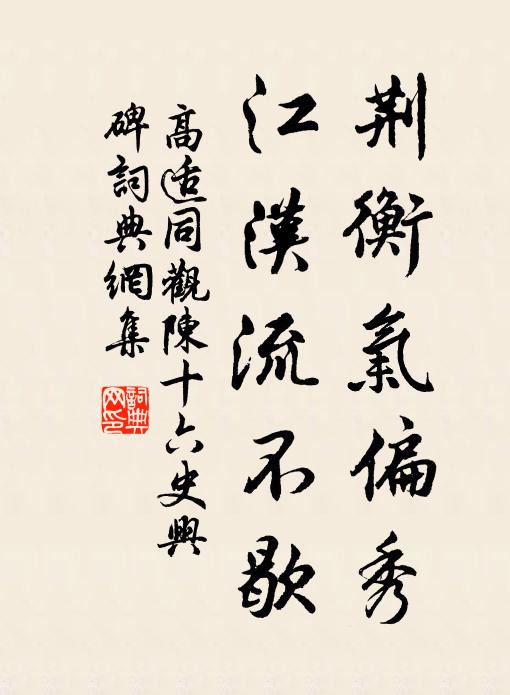 荆衡氣偏秀
江漢流不歇
高适同觀陳十六史興
碑詞典網集
詞典网印